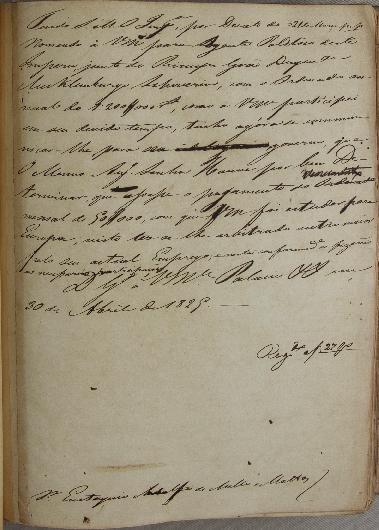 Tendo S. M. O Imp.or, por Decreto de 21 de Março p. p.
Nomeado a VM.ce para Agente Politico deste
Imperio junto do Principe Grão Duque de
Mecklemburgo Schwerin, com o Ordenado an-
nual de 1:200$000 r.s, como a VM.ce participei
em seu devido tempo, tenho agora de commu-
nicar-lhe para seu governo, que
O Mesmo Aug. Senhor Houve por bem De-
terminar, que cesse o pagamento do Ordenado
mensal de 50$000, com que VM.ce foi estudar para
Europa, visto ter-se-lhe arbitrado outro maior
pelo seu actual Emprego,
D.s G.e a VM.ce Palacio em
30 de Abril de 1825
Reg.do a f. 27
S.r Eustaquio Adolfo de Mello e Mattos